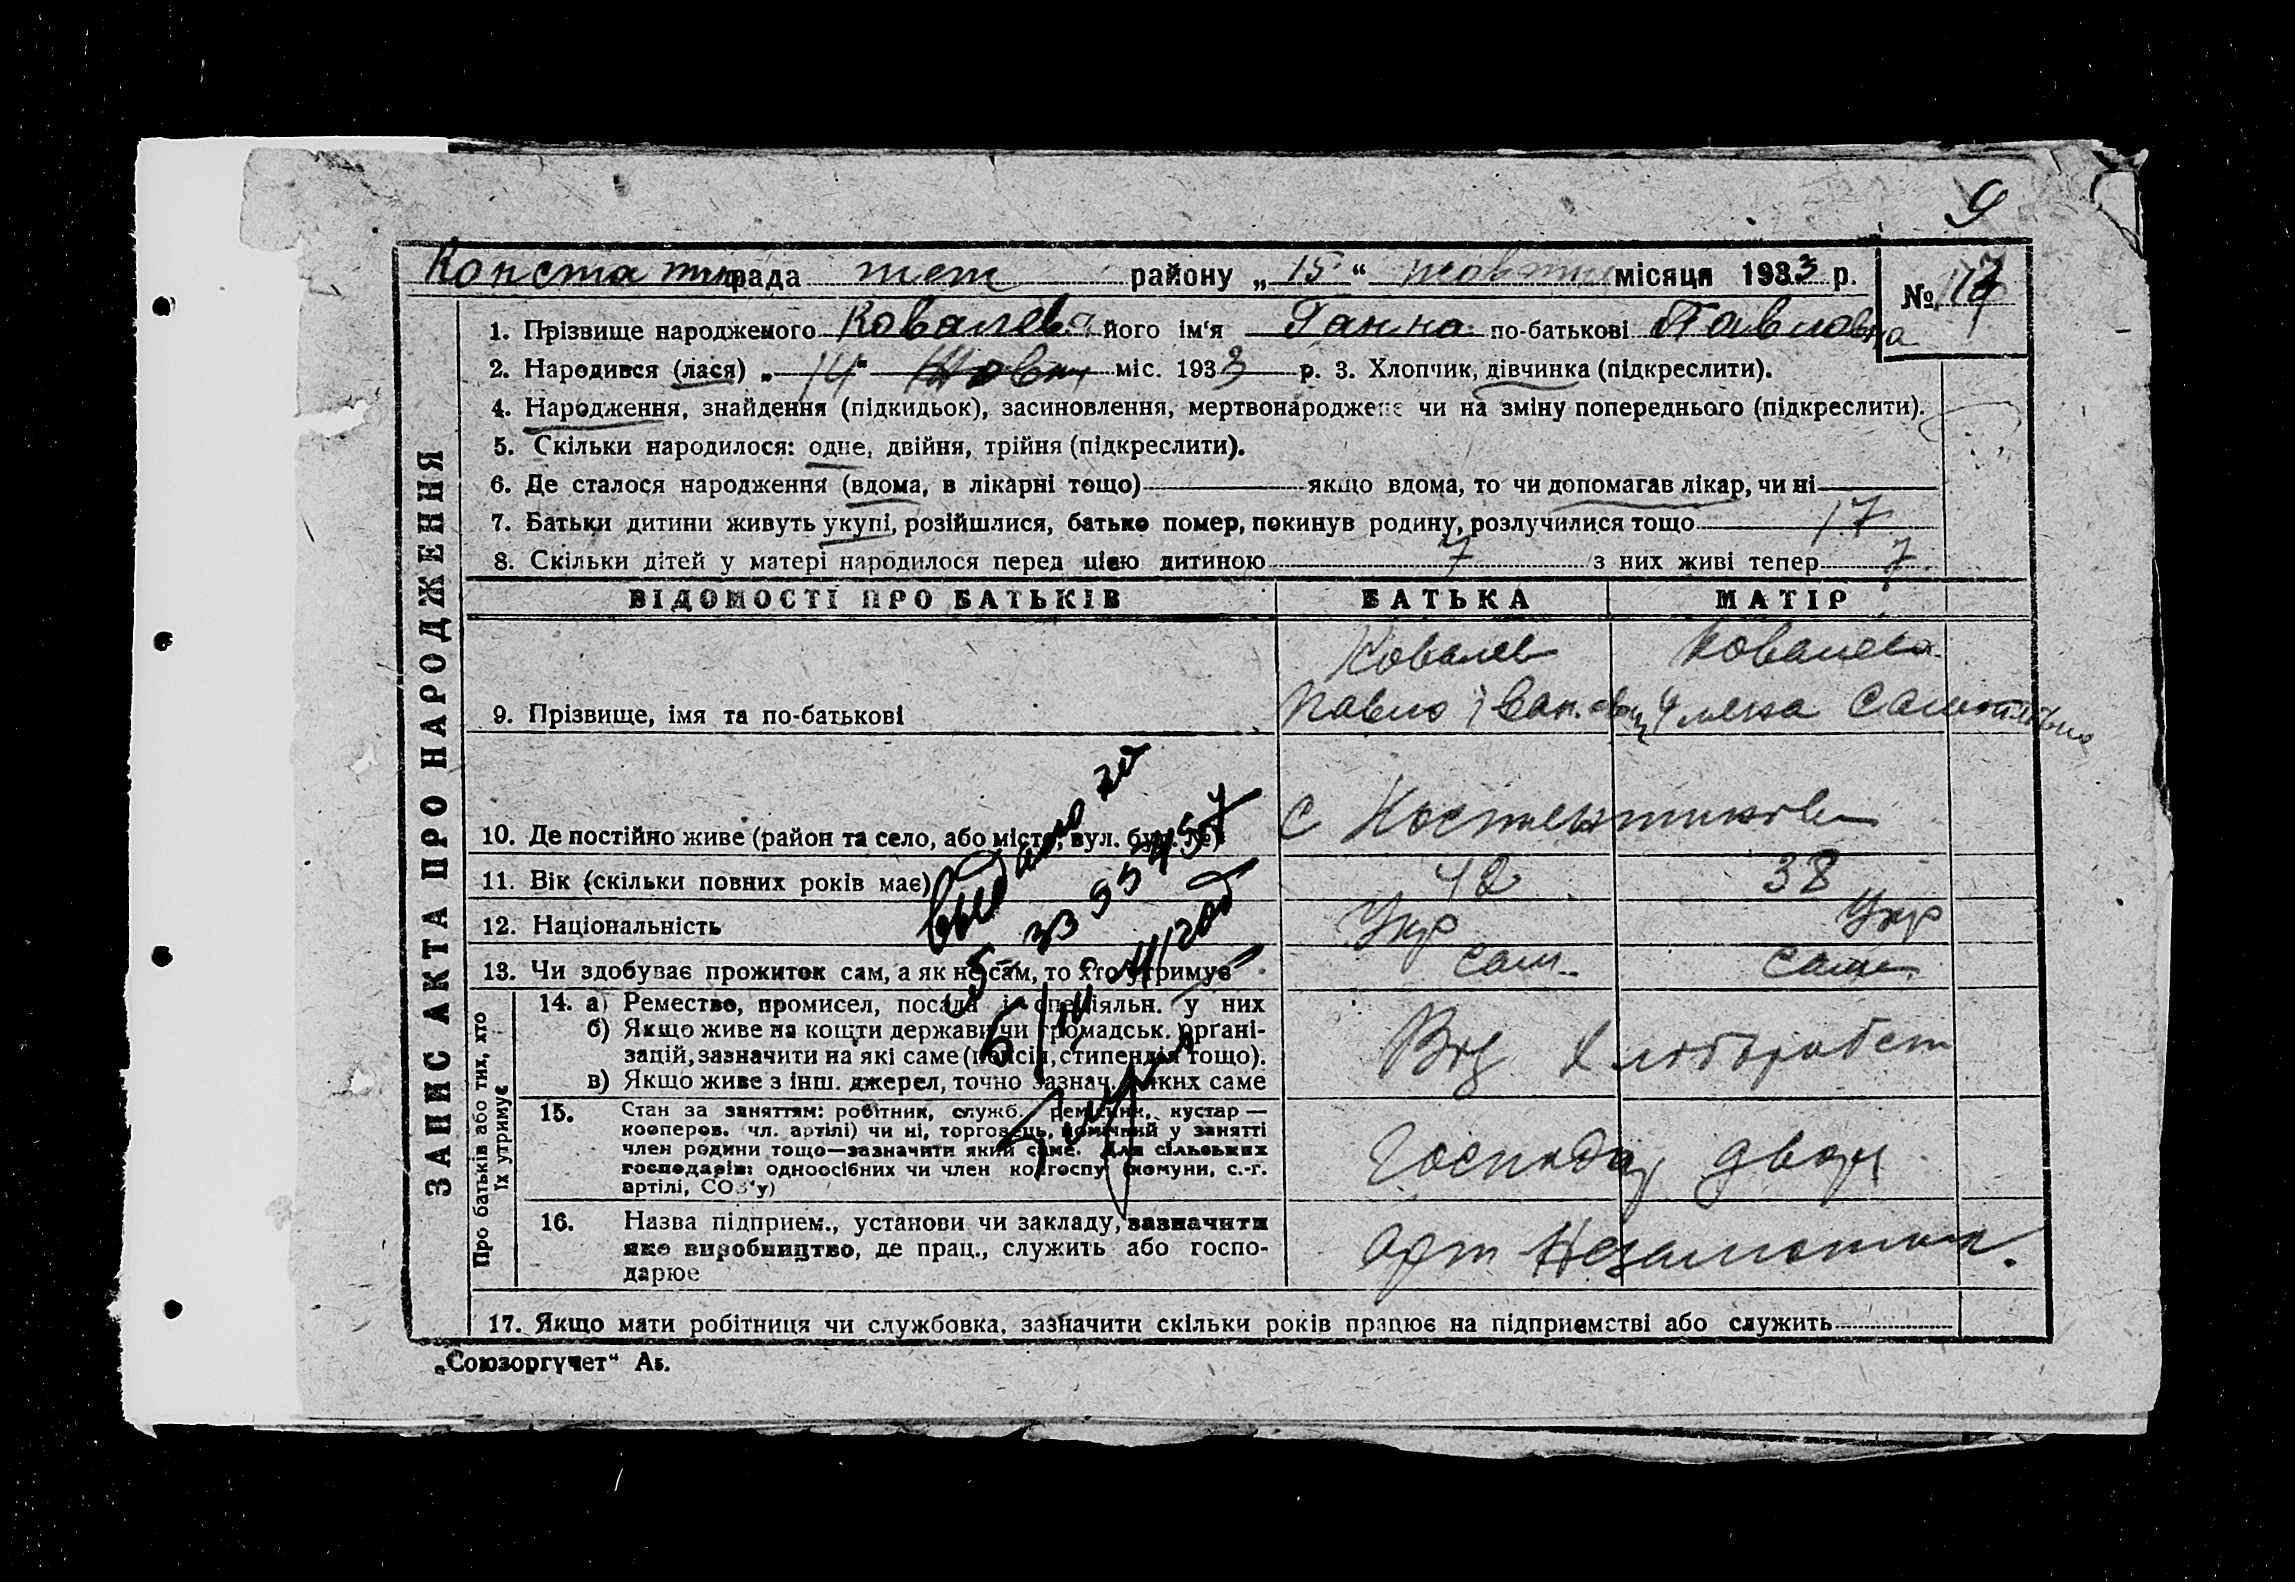 9
рада тет району „15“ місяця 1933 р.
№ 117
1. Прізвище народженого Ковалева його ім'я Ганна по-батькові Павловна
2. Народився (лася) „14“ Жовт міс. 1933 р. 3. Хлопчик, дівчинка (підкреслити).
4. Народження, знайдення (підкидьок), засиновлення, мертвонароджене чи на зміну попереднього (підкреслити).
5. Скільки народилося: одне, двійня, трійня (підкреслити).
6. Де сталося народження (вдома, в лікарні тощо) якщо вдома, то чи допомагав лікар, чи ні
7. Батьки дитини живуть укупі, розійшлися, батько помер, покинув родину, розлучилися тощо 17
8. Скільки дітей у матері народилося перед цією дитиною 7 з них живі тепер 7
ЗАПИС АКТА ПРО НАРОДЖЕННЯ
ВІДОМОСТІ ПРО БАТЬКІВ БАТЬКА МАТІР
Ковалев Ковалева
9. Прізвище, імя та по-батькові Павло Іванович
10. Де постійно живе (район та село, або місто, вул. буд. №) с
11. Вік (скільки повних років має) 42 38
12. Національність Укр Укр
13. Чи здобуває прожиток сам, а як не сам, то хто утримує сам сама
Про батьків або тих, хто
їх утримує
14. а) Ремество, промисел, посада і спеціяльн. у них
б) Якщо живе на кошти держави чи громадськ. органі-
зацій, зазначити на які саме (пенсія, стипендія тощо).
в) Якщо живе з інш. джерел, точно зазнач. яких саме
15. Стан за заняттям: робітник, служб. ремісник, кустар —
кооперов. чл. артілі) чи ні, торговець, помічний у занятті
член родини тощо—зазначити який саме. Для сільських
господарів: одноосібних чи член колгоспу (комуни, с.-г.
артілі, СОЗ'у)
Господар двору
16. Назва підприєм., установи чи закладу, зазначити
яке виробництво, де прац., служить або госпо-
дарює
арт Незаможник.
17. Якщо мати робітниця чи службовка, зазначити скільки років працює на підприємстві або служить
„Союзоргучет“ А5.